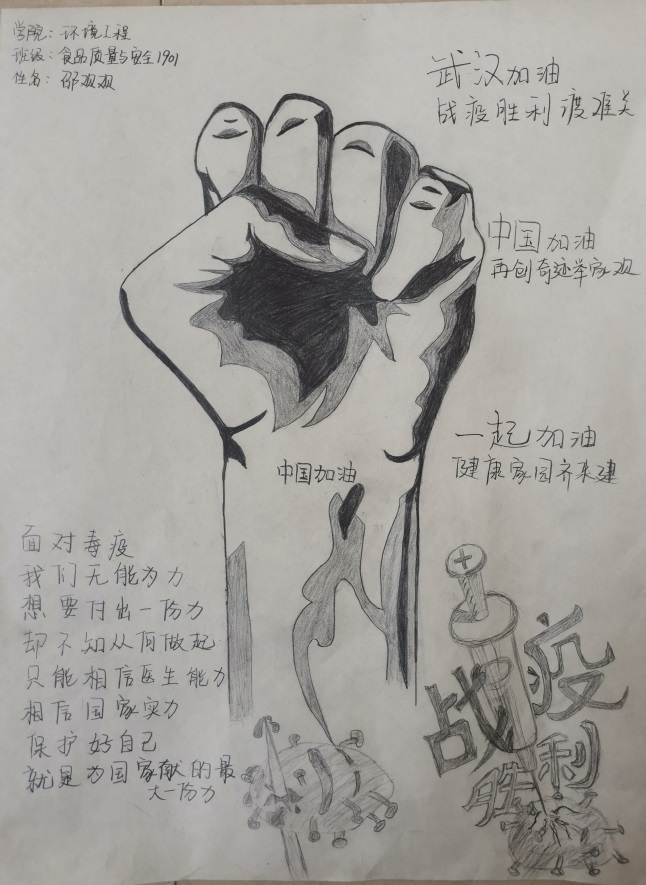 学院：环境工程
班级：食品质量与安全1901
性名：邵双双
武汉加油
战疫胜利渡难关
中国加油
再创奇迹举家欢
一起加油
健康家园齐来建
中国加油
面对毒疫
我们无能为力
想要付出一份力
却不知从何做起
只能相信医生能力
相信国家实力
保护好自己
就是为国家献的最
大一份力
战疫
胜利